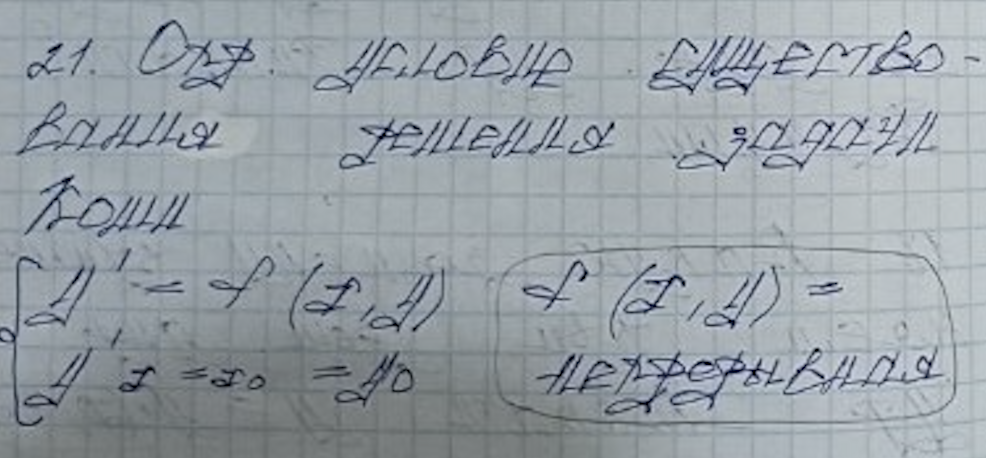 21. Опр. условие существо-
вания решения задачи
Коши
{ y' = f (x, y) f (x, y) =
y' x = x0 = y0 непрерывная